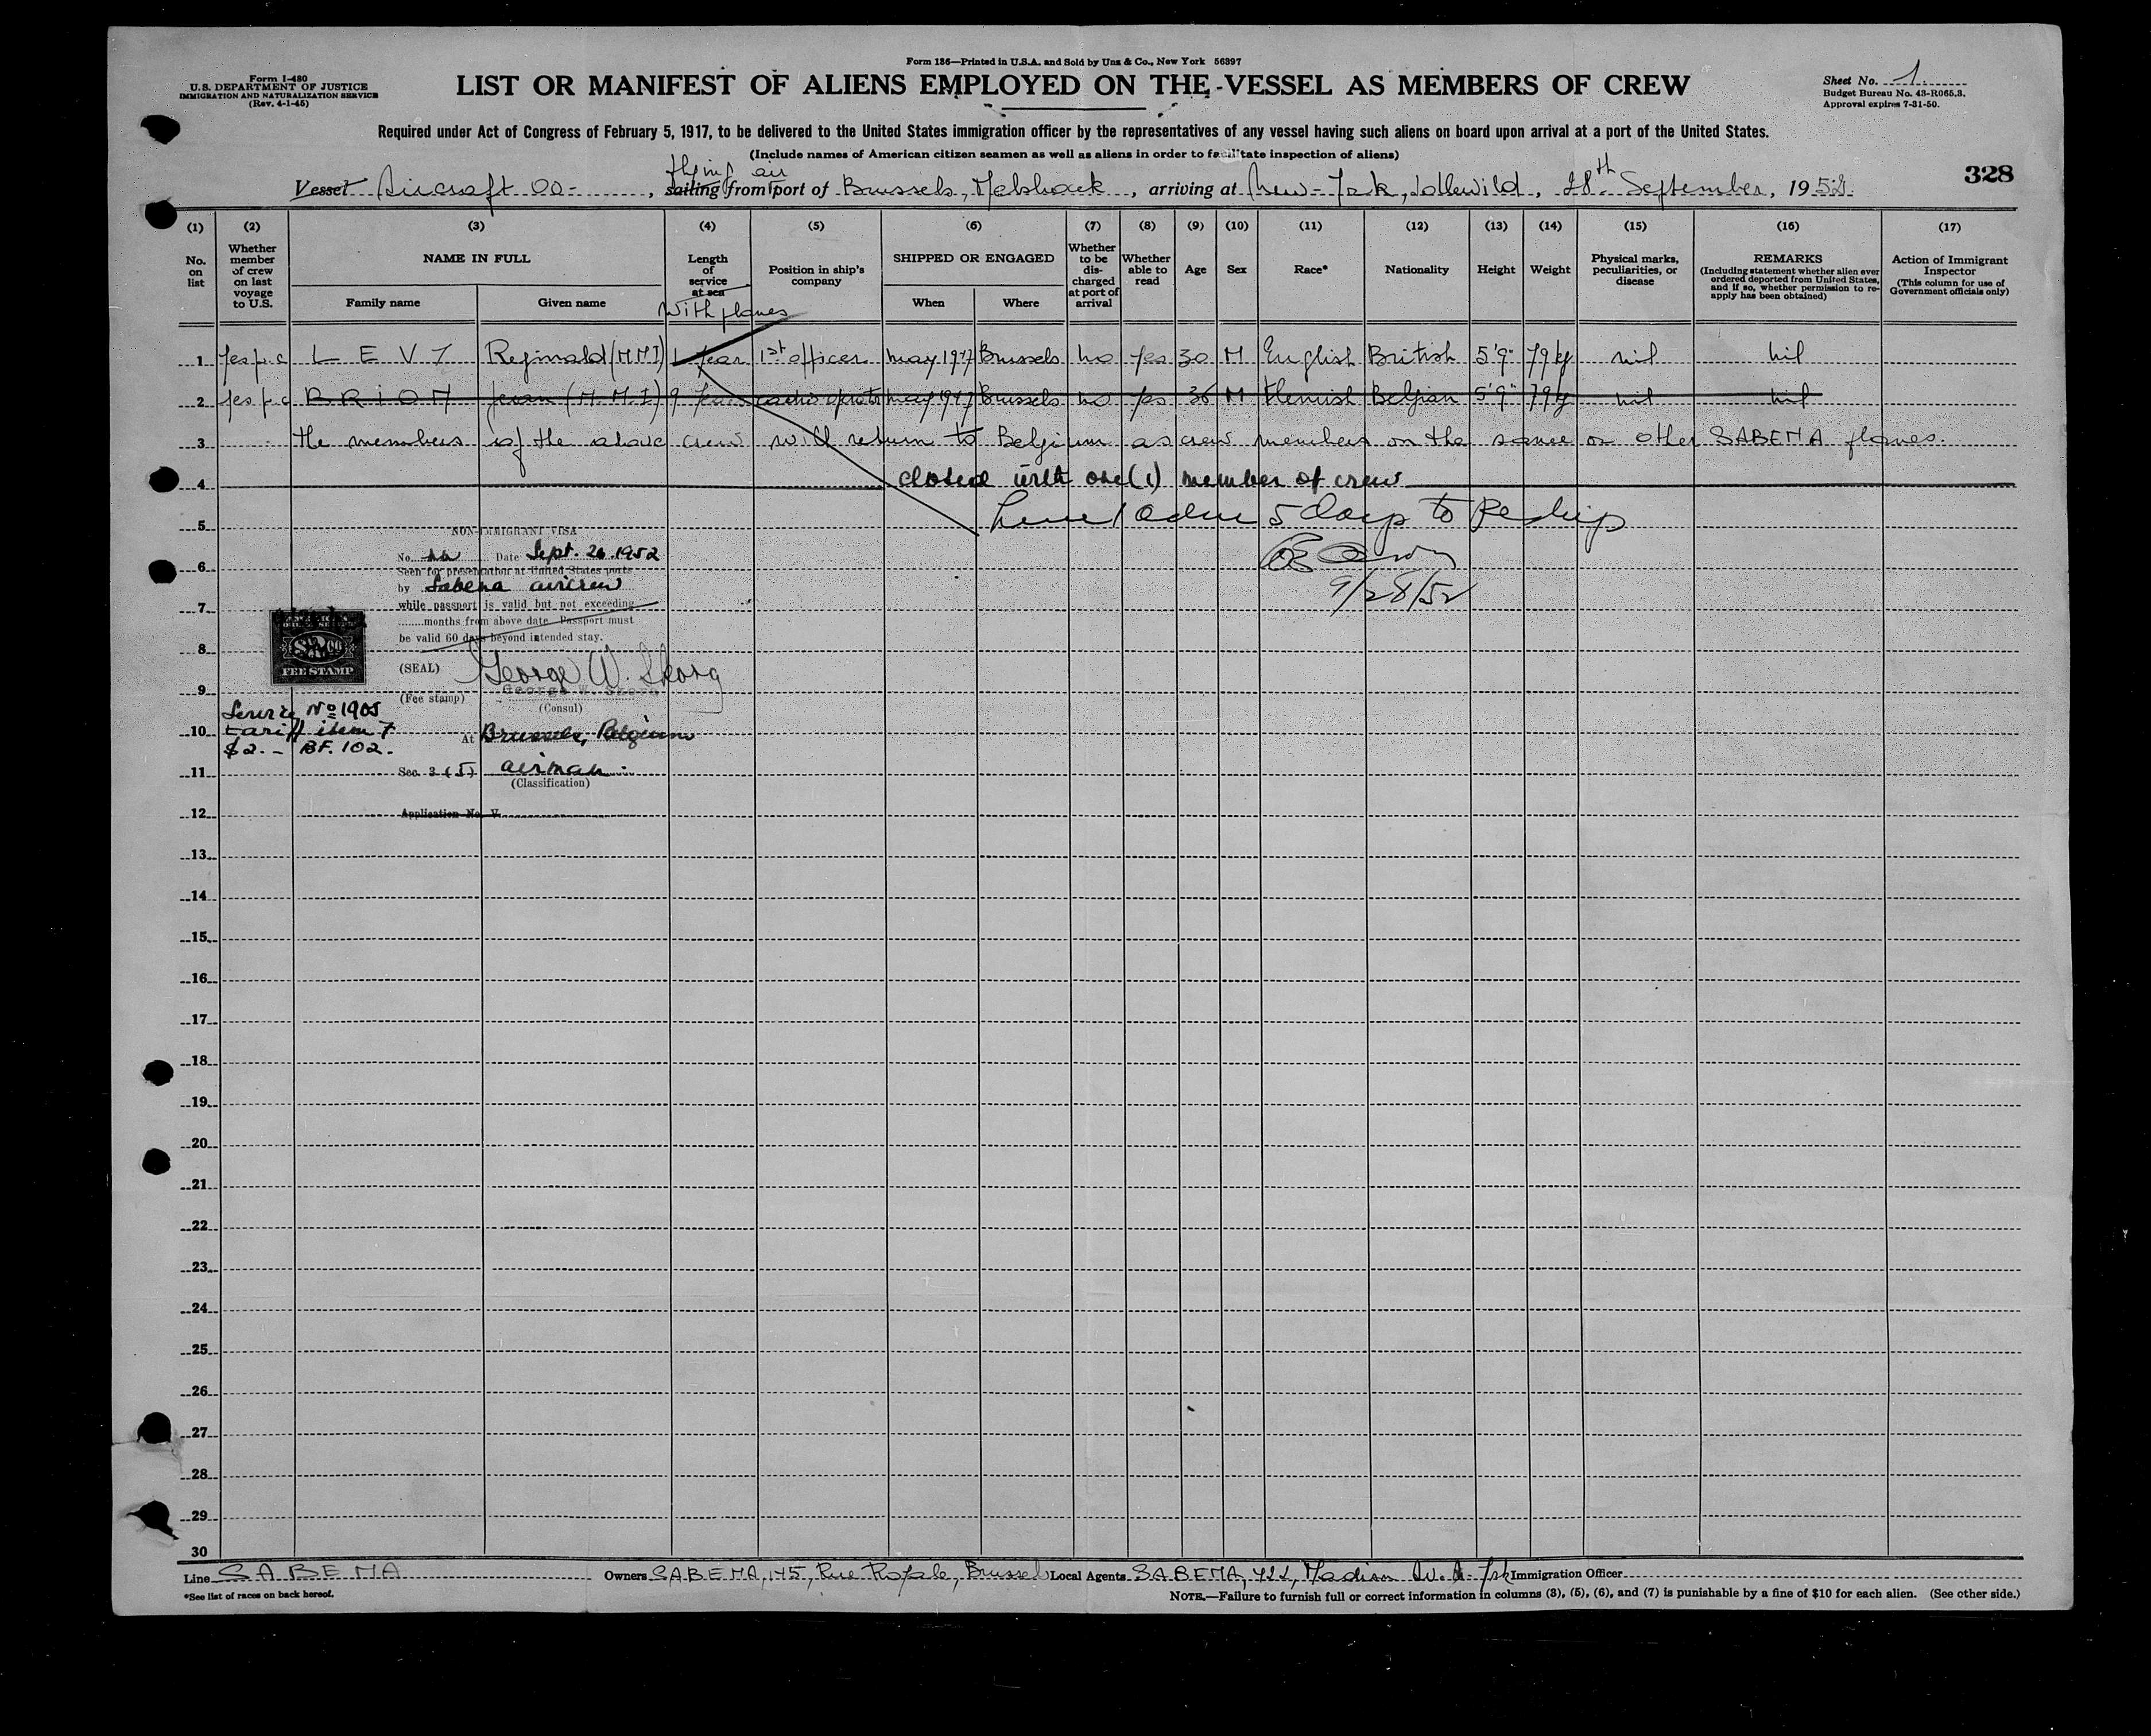 Form 186—Printed in U.S.A. and Sold by Unz & Co., New York 56397
Form I-480
U.S. DEPARTMENT OF JUSTICE
IMMIGRATION AND NATURALIZATION SERVICE
(Rev. 4-1-45)
LIST OR MANIFEST OF ALIENS EMPLOYED ON THE VESSEL AS MEMBERS OF CREW
Sheet No. 1.
Budget Bureau No. 43-R065.3.
Approval expires 7-31-50.
Required under Act of Congress of February 5, 1917, to be delivered to the United States immigration officer by the representatives of any vessel having such aliens on board upon arrival at a port of the United States.
(Include names of American citizen seamen as well as aliens in order to facilitate inspection of aliens)
328
flying air
Vessel Aircraft OO- , sailing from port of Brussels, Melsbroek , arriving at New-York, Idlewild , 28th September , 1952.
(1) (2) (3) (4) (5) (6) (7) (8) (9) (10) (11) (12) (13) (14) (15) (16) (17)
No. on list
Whether member of crew on last voyage to U.S.
NAME IN FULL
Family name
Given name
Length of service at sea
with planes
Position in ship's company
SHIPPED OR ENGAGED
When
Where
Whether to be discharged at port of arrival
Whether able to read
Age
Sex
Race*
Nationality
Height
Weight
Physical marks, peculiarities, or disease
REMARKS
(Including statement whether alien ever ordered deported from United States, and if so, whether permission to reapply has been obtained)
Action of Immigrant Inspector
(This column for use of Government officials only)
1 yes p.c LEVY Reginald (M.M.I) year 1st officer may 1947 Brussels no yes 30 M English British 5'9" 79 kg nil nil
2 yes p.c BRION Jean (M.M.I) 9 years may 1947 Brussels no yes 36 M Flemish Belgian 5'9" 79 kg nil nil
3 the members of the above crew will return to Belgium as crew members on the same or other SABENA planes.
4 closed with one (1) member of crew
5 5 days to Reship
NON-IMMIGRANT VISA
No. Date Sept. 26. 1952
Seen for presentation at United States ports
6 by Sabena aircrew
9/28/52
7 while passport is valid but not exceeding
months from above date. Passport must
be valid 60 days beyond intended stay.
8 (SEAL) George W. Skora
FEE STAMP
9 George W. Skora
(Fee stamp) (Consul)
Service No 1905
10 tariff item 7 At Brussels, Belgium
$2.- BF. 102.
11 Sec. 3 (5) airman
(Classification)
12 Application No. V
13
14
15
16
17
18
19
20
21
22
23
24
25
26
27
28
29
30
Line SABENA Owners SABENA, 145, Rue Royale, Brussels Local Agents SABENA, 422, Madison Immigration Officer
*See list of races on back hereof.
NOTE.—Failure to furnish full or correct information in columns (3), (5), (6), and (7) is punishable by a fine of $10 for each alien. (See other side.)